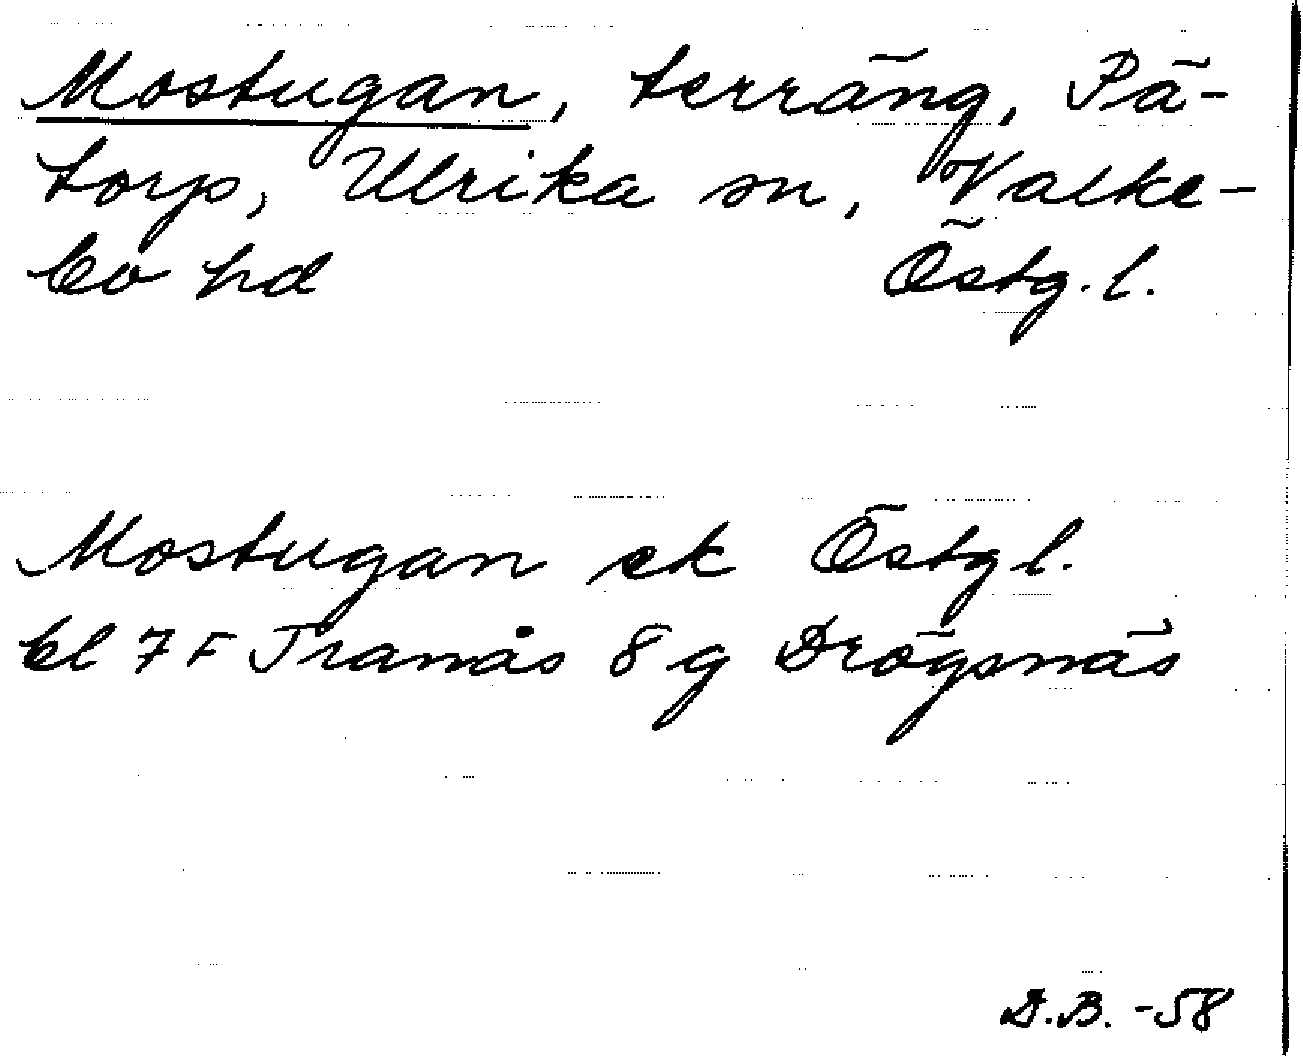 Mostugan, terräng, Pä-
torp, Ulrika sn, Valke-
bo hd Östg. l.
Mostugan ek Östg l.
bl 7 F Tranås 8 g Drögsnäs
D.B. -58